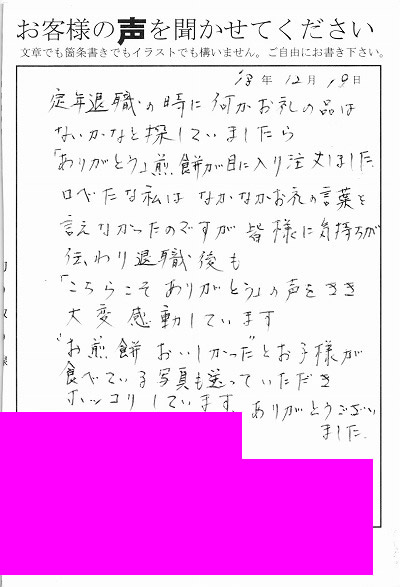 お客様の声を聞かせてください
文章でも箇条書きでもイラストでも構いません。ご自由にお書き下さい。
18年12月19日
定年退職の時に何かお礼の品は
ないかなと探していましたら
「ありがとう」煎餅が目に入り注文しました
口べたな私は なかなかお礼の言葉を
言えなかったのですが 皆様に気持ちが
伝わり退職後も
「こちらこそ ありがとう」の声をきき
大変感動しています
"お煎餅 おいしかった"とお子様が
食べている写真も送っていただき
ホッコリしています。ありがとうござい
ました。